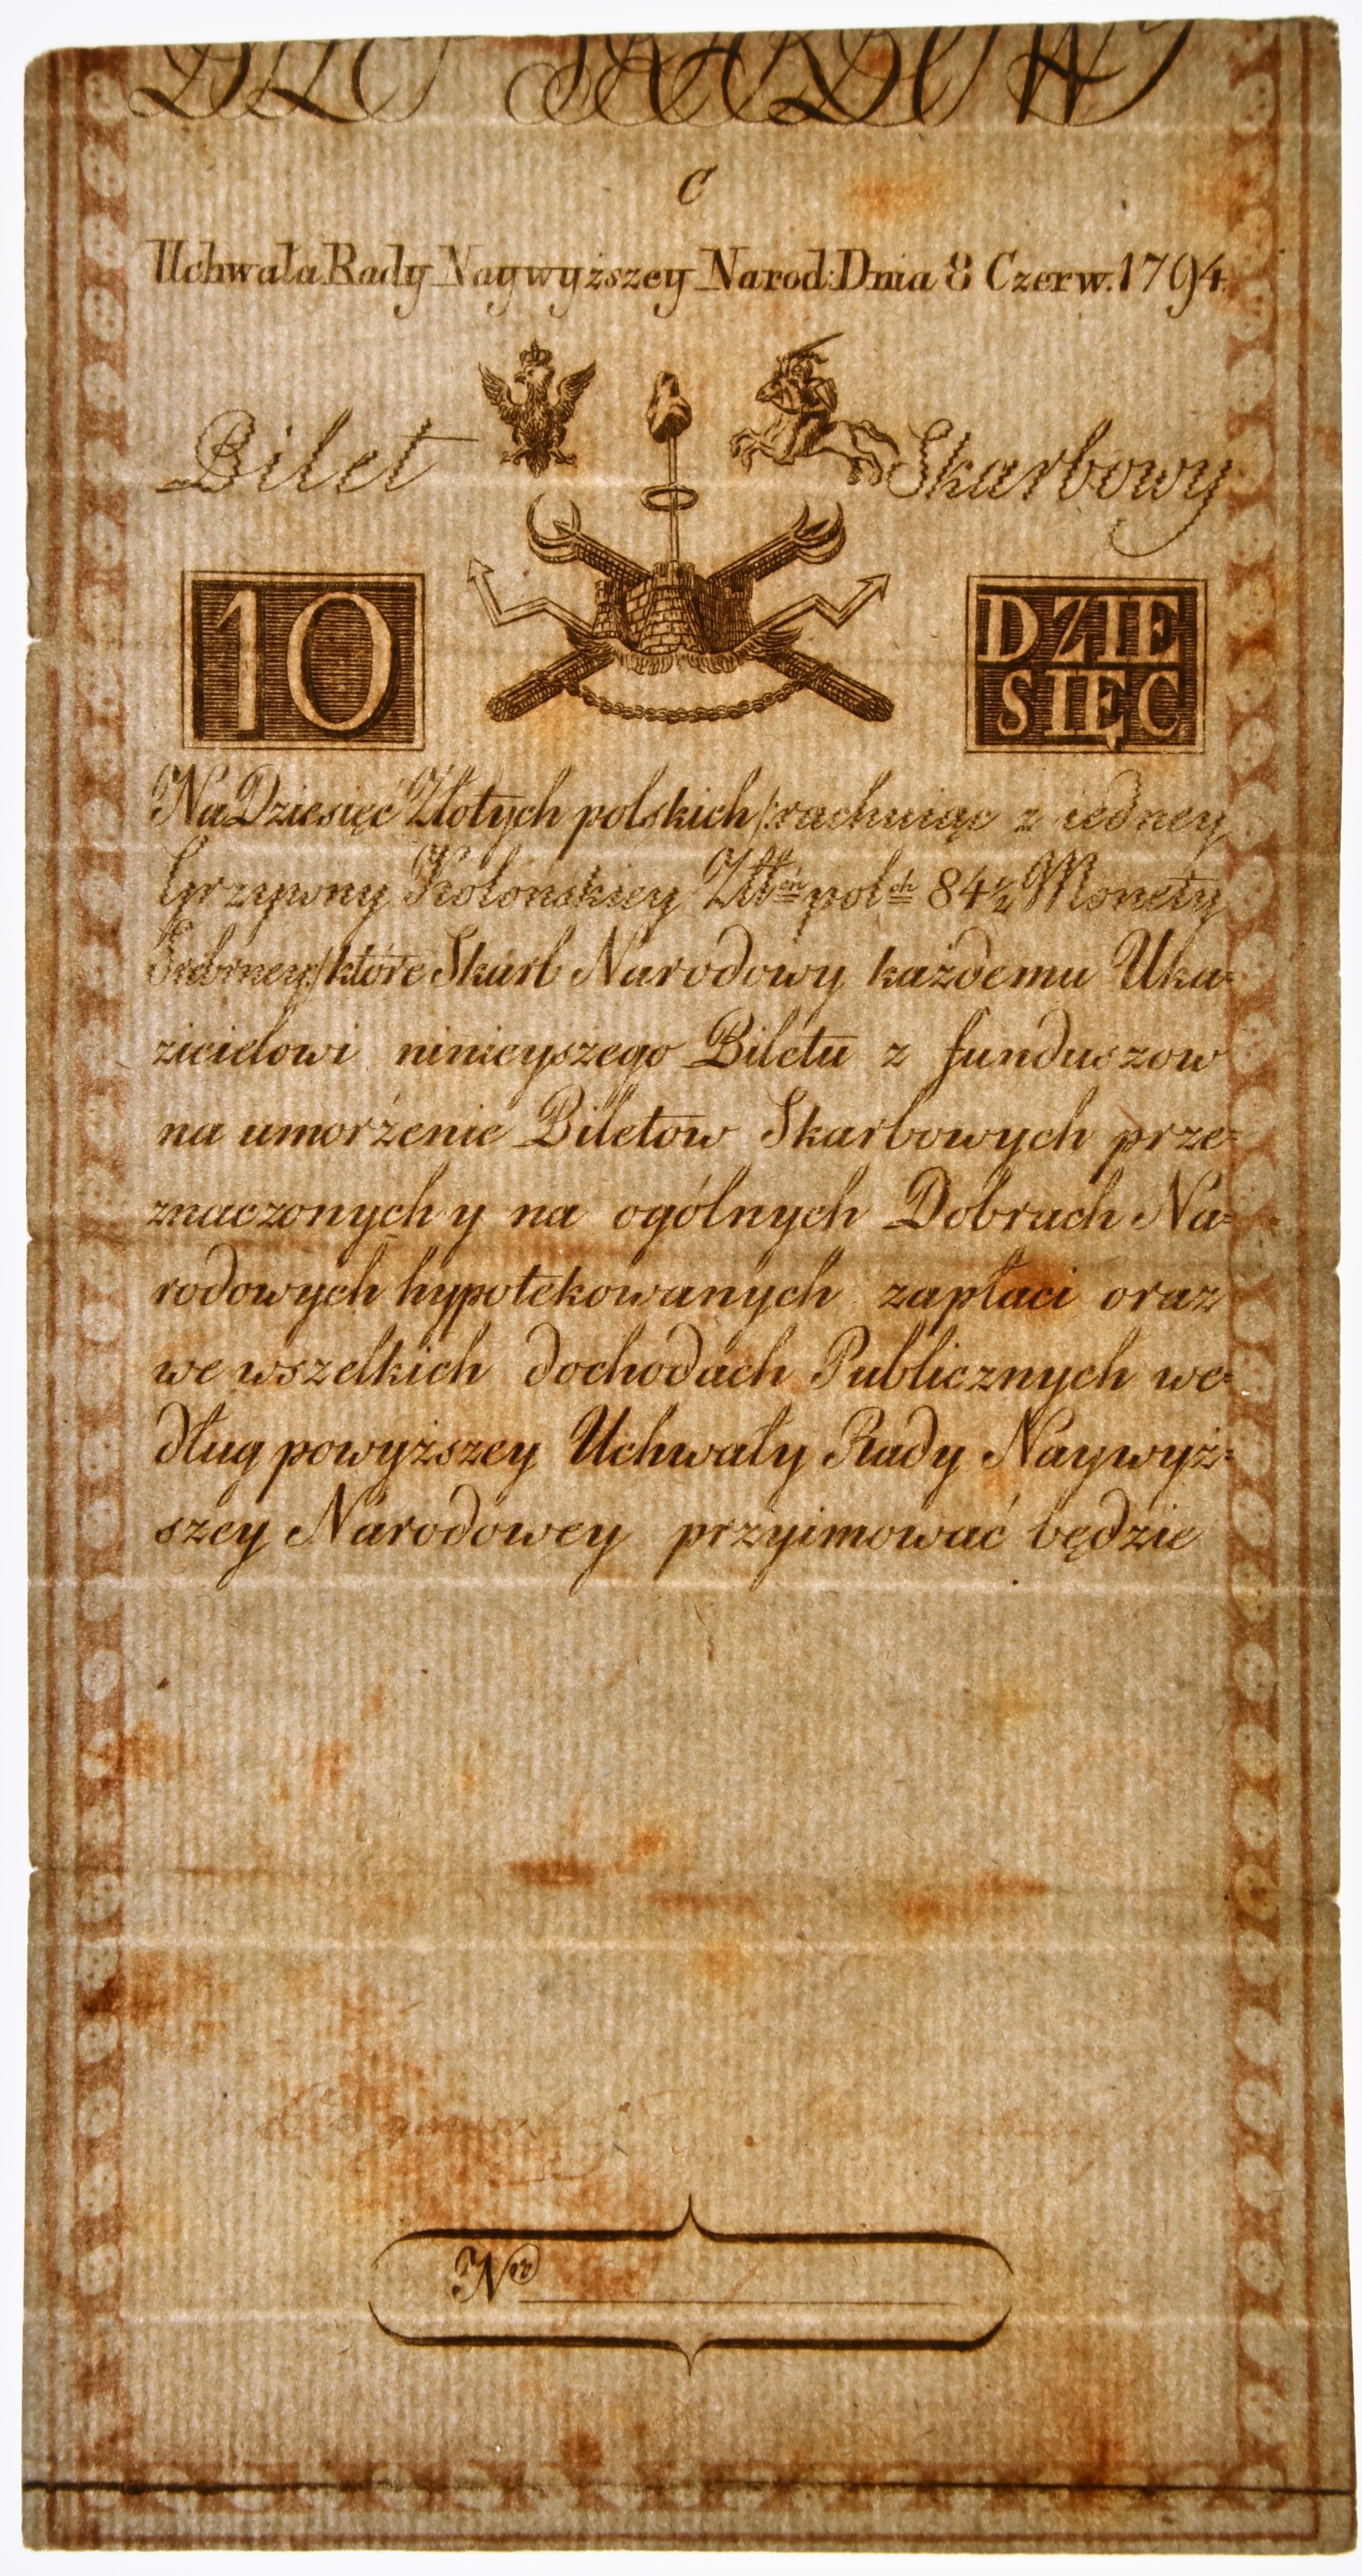 BILET SKARBOWY
C
Uchwała Rady Naywyższey Narod: Dnia 8 Czerw. 1794.
Bilet Skarbowy
10 DZIE
SIĘC
Na Dziesięć Złotych polskich /:rachuiąc z iedney
Grzywny Kolońskiey Złłch polch 84½ Monety
Srebrney/ które Skarb Narodowy każdemu Uka=
zicielowi ninieyszego Biletu z funduszow
na umorzenie Biletow Skarbowych prze=
znaczonych y na ogólnych Dobrach Na=
rodowych hypotekowanych zapłaci oraz
we wszelkich dochodach Publicznych we=
dług powyższey Uchwały Rady Naywyż=
szey Narodowey przyimować będzie
Nro